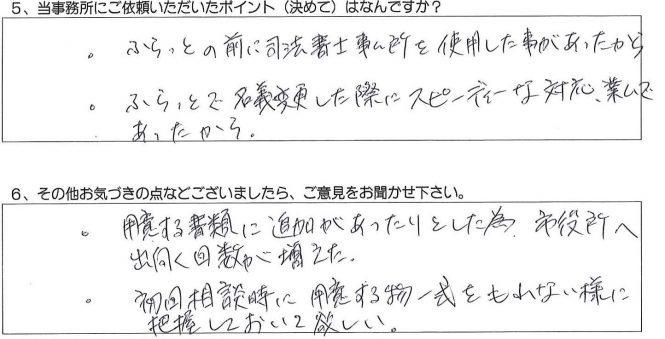 5、当事務所にご依頼いただいたポイント（決めて）はなんですか？
。ふらっとの前に司法書士事ム所を使用した事があったから
。ふらっとで名義変更した際にスピーディーな対応、業ムで
あったから。
6、その他お気づきの点などございましたら、ご意見をお聞かせ下さい。
。用意する書類に追加があったりとした為、市役所へ
出向く回数が増えた。
。初回相談時に用意する物一式をもれない様に
把握しておいて欲しい。